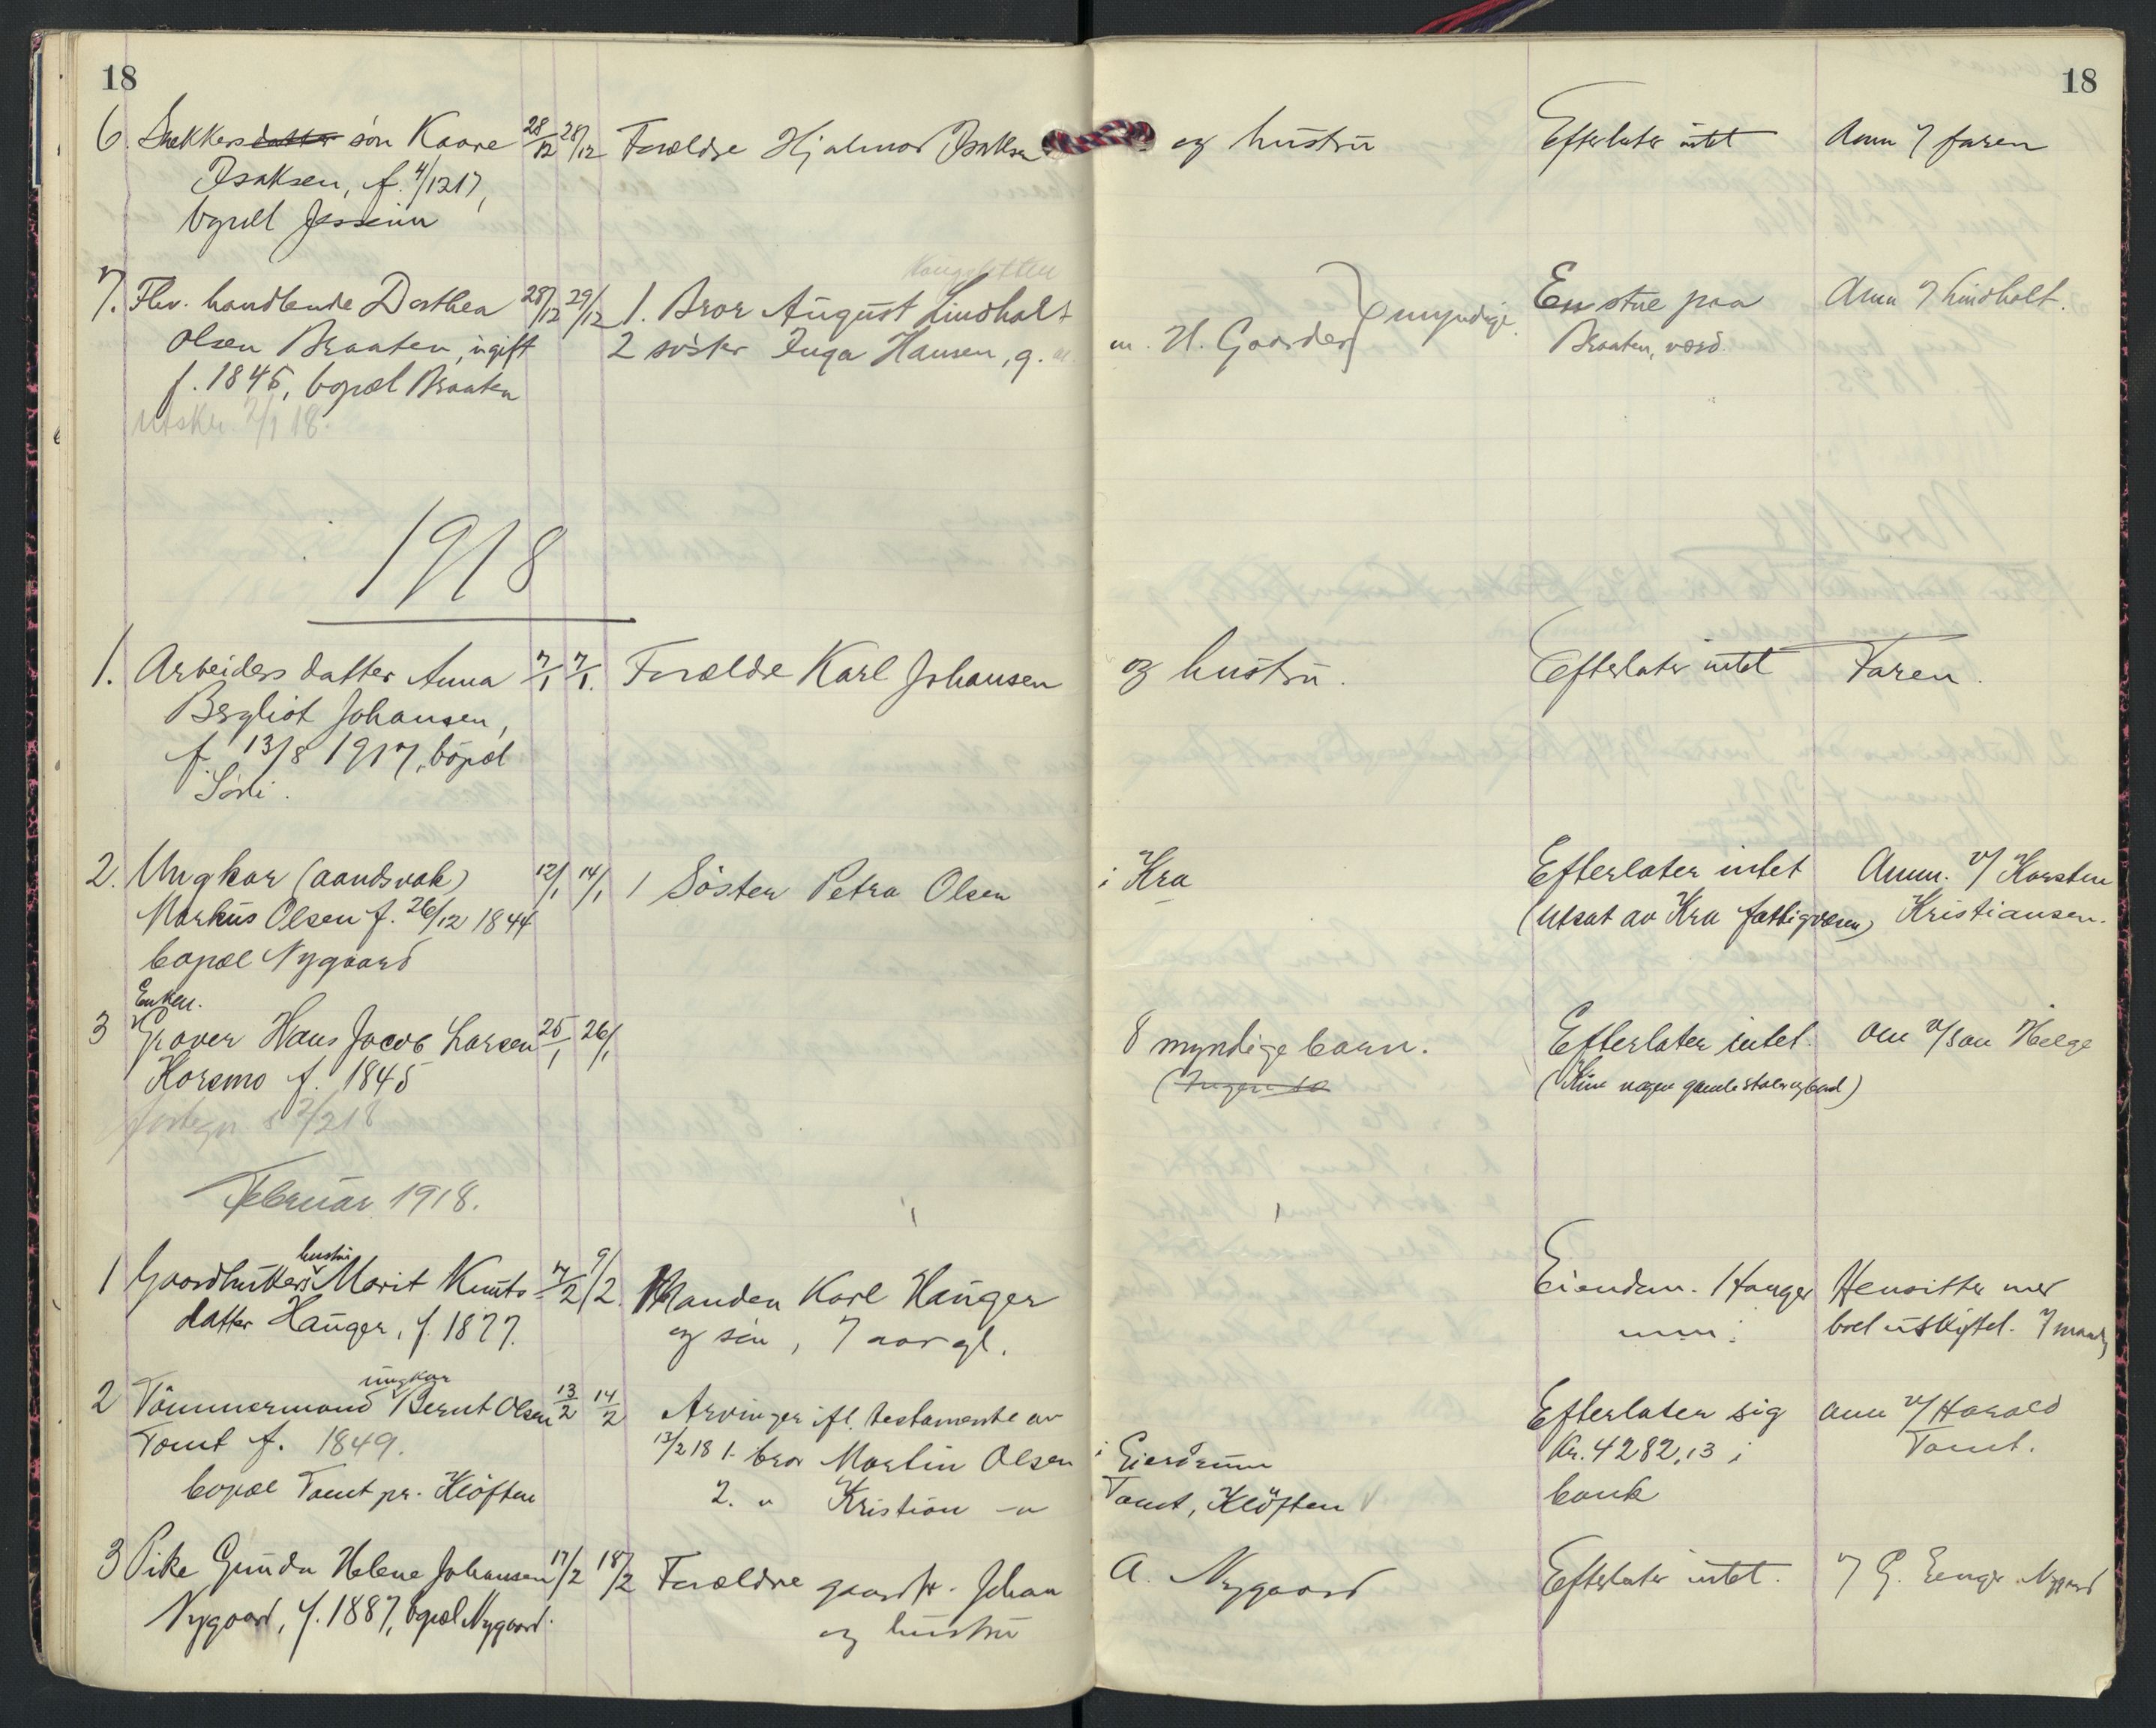 18
18
6. Snekkers datter søn Kaare 28/12 28/12 Forældre Hjalmar Isaksen og hustru Efterlater intet Anm v/ faren
Isaksen, f. 4/12 17,
bopæl Jessein
7. Fhv. handlende Dorthea 28/12 29/12 1. Bror August Lindholt myndige En stue paa Anm v/ Lindholt.
Olsen Braaten, ugift 2 søster Inga Hansen, g. m. H. Gaarder Braaten, værd.
f. 1845, bopæl Braaten
Utskr. 2/1 18.
1918
1. Arbeiders datter Anna 7/1 7/1. Forældre Karl Johansen og hustru. Efterlater intet Faren.
Bergliot Johansen,
f. 13/8 1917, bopæl
Sørli.
2. Ungkar (aandsvak) 12/1 14/1 1 Søster Petra Olsen i Kra Efterlater intet Anm. v/ Karsten
Markus Olsen f. 26/12 1844 (utsat av Kra fattigvæsen) Kristiansen.
bopæl Nygaard
Enkem.
3 Graver Hans Jacob Larsen 25/1 26/1 8 myndige barn. Efterlater intet. Am v/ søn Helge
Korsmo f. 1845 (Kun nogen gamle stoler og bord)
2/2 18
Februar 1918.
hustru
1 Gaardbrukers Marit Knuts- 7/2 9/2. Manden Karl Hauger Eiendom. Hauger Hensitter med
datter Hauger, f. 1877. og søn, 7 aar gl. bo uskiftet. v/ mand
ungkar
2 Tömmermand Bernt Olsen 13/2 14/2 Arvinger ifl. testamente av Efterlater sig anm v/ Harald
Tomt f. 1849. 13/2 18 1. bror Martin Olsen i Eierdrum Kr. 4282,13 i Tomt.
bopæl Tomt pr. Kløften 2. " Kristian -"- Tomt, Kløften bank
3 Pike Gunda Helene Johansen 17/2 18/2 Forældre gaardbr. Johan A. Nygaard Efterlater intet. v/ G. Nygaard
Nygaard, f. 1887, bopæl Nygaard. og hustru